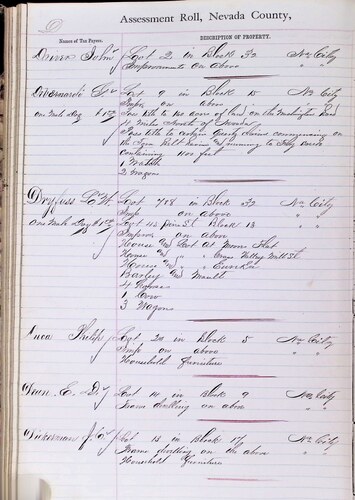 D
Assessment Roll, Nevada County,
Names of Tax Payers.
DESCRIPTION OF PROPERTY.
John Lot 2 in Block 32 Na City
Improvements on above " "
Lot 9 in Block 15 Na City
Imps on above "
Poss title to 160 acres of Land on the Washington Road
Miles North of Nevada
Poss title to certain Claims commencing on
the and running to
containing 1100 feet
1 Watch
2 Wagons
Dreyfuss L W. Lot 7 & 8 in Block 32 Na City
Imp on above "
Lot 42 Pine St Block 13 "
Improvs on above "
House and Lot at Moore Flat
House " " " Grass Valley Mill St.
House and " " Eureka
Barley and Mault
4 Horses
1 Cow
3 Wagons
Philip Lot 20 in Block 5 Na City
Imp on above " "
Household furniture
E. D. Lot 14 in Block 9 Na City
Frame dwelling on above " "
Dickerman J. C. Lot 18 in Block 17 Na City
Frame dwelling on the above " "
Household Furniture